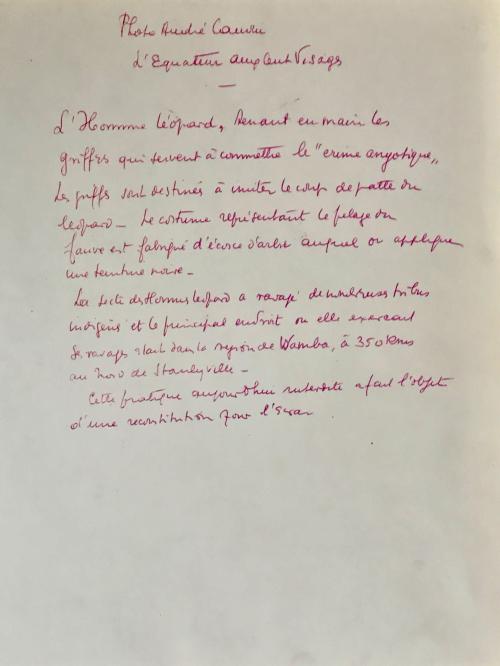 Photo André Cauvin
L'Equateur aux Cent Visages
—
L'Homme léopard, tenant en main les
griffes qui servent à commettre le "crime anyotique".
Les griffes sont destinés à imiter le coup de patte du
léopard — Le costume représentant le pelage du
fauve est fabriqué d'écorce d'arbre auquel on applique
une teinture noire —
La secte des Hommes léopard a ravagé de nombreuses tribus
indigènes et le principal endroit où elle exercait
ses ravages était dans la région de Wamba, à 350 kms
au Nord de Stanleyville —
Cette pratique aujourd'hui interdite a fait l'objet
d'une reconstitution pour l'écran